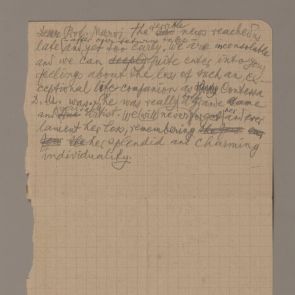 Dear Prof. Marri, the terrible news reached us
after our return here
late and yet too early. We are inconsolable
and we can deeply quite enter into your
feelings about the loss of such an ex-
ceptional companion as
was. she was really a grand dame
and artist. we will never forget and ever
lament her loss, remembering
her splendid and charming
individuality.